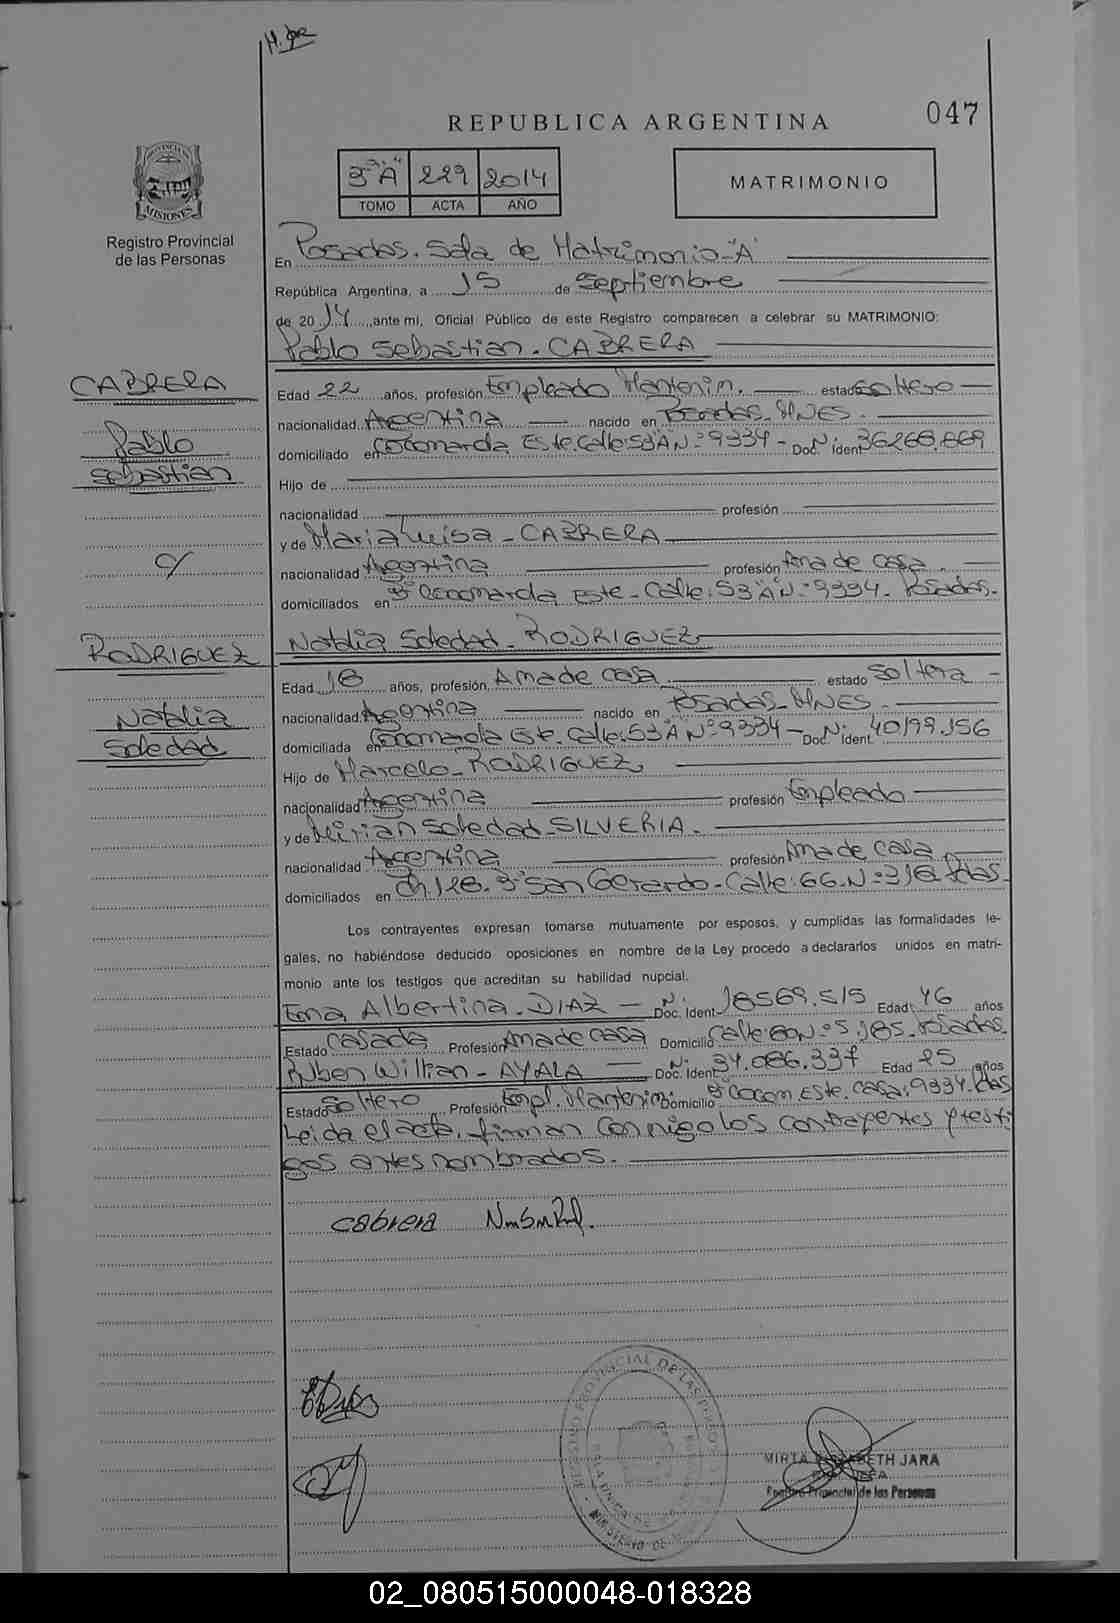 047
REPUBLICA ARGENTINA
3º "A" 229 2014
TOMO ACTA AÑO
MATRIMONIO
PROVINCIA DE
MISIONES
Registro Provincial
de las Personas
En Posadas. Sala de Matrimonio-"A"
República Argentina, a 15 de Septiembre
de 2014, ante mi, Oficial Público de este Registro comparecen a celebrar su MATRIMONIO:
Pablo Sebastian. CABRERA
CABRERA
Pablo
Sebastian
Edad 22 años, profesión Empleado Mantenim. estado Soltero
nacionalidad Argentina nacido en Posadas-MNES.
domiciliado en Cocomarola Este. Calle: 53 "A" Nº: 9334- Doc. Ident. Nº 36.268.669
Hijo de
nacionalidad profesión
y de Maria Luisa - CABRERA
c/
nacionalidad Argentina profesión Ama de casa.
domiciliados en Bº Cocomarola Este- Calle: 53 "A" Nº: 9334- Posadas.
RODRIGUEZ
Natalia Soledad. RODRIGUEZ
Natalia
Soledad
Edad 18 años, profesión, Ama de casa estado Soltera -
nacionalidad. Argentina nacido en Posadas-MNES.
domiciliada en Cocomarola Este. Calle: 53 "A" Nº: 9334- Doc. Ident. Nº 40.199.156
Hijo de Marcelo- RODRIGUEZ
nacionalidad Argentina profesión Empleado
y de Mirian Soledad-SILVERIA.
nacionalidad Argentina profesión Ama de casa
domiciliados en Ch. 128. Bº San Gerardo- Calle: 66. Nº: 316 Pdas.
Los contrayentes expresan tomarse mutuamente por esposos, y cumplidas las formalidades le-
gales, no habiéndose deducido oposiciones en nombre de la Ley procedo a declararlos unidos en matri-
monio ante los testigos que acreditan su habilidad nupcial.
Ema Albertina. DIAZ - Doc. Ident. Nº 18569.515 Edad: 46 años
Estado Casada Profesión Ama de casa Domicilio Calle: 80 Nº: 5.185. Posadas.
Ruben Willian - AYALA - Doc. Ident. Nº 34.086.337 Edad 25 años
Estado Soltero Profesión Empl. Mantenim. Domicilio Bº Cocom. Este. Casa: 9334. Pdas
Leida el acta, firman conmigo los contrayentes y testi
gos antes nombrados.
cabrera
MIRTA ELIZABETH JARA
Registro Provincial de las Personas
02_080515000048-018328